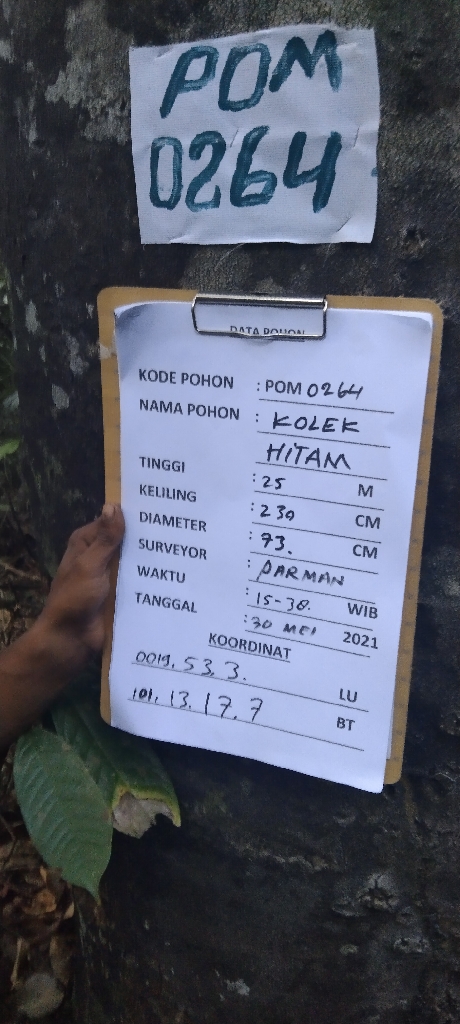 POM
0264
DATA POHON
KODE POHON : POM 0264
NAMA POHON : KOLEK
HITAM
TINGGI : 25 M
KELILING : 230 CM
DIAMETER : 73. CM
SURVEYOR : PARMAN
WAKTU : 15-30. WIB
TANGGAL : 30 MEI 2021
KOORDINAT
0019. 53. 3. LU
101. 13. 17. 7 BT